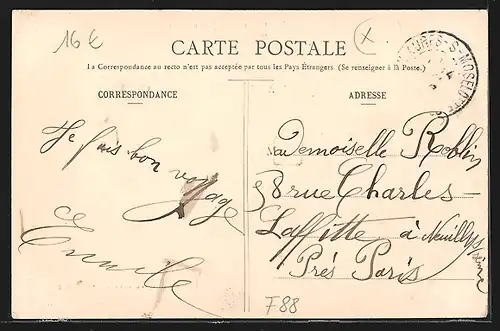 16 €
CARTE POSTALE
La Correspondance au recto n'est pas acceptée par tous les Pays Étrangers. (Se renseigner à la Poste.)
CORRESPONDANCE
ADRESSE
Je fais bon voyage
ce
Emile
Mademoiselle Roblin
58 rue Charles-
Laffitte à Neuilly s/ Seine
Près Paris
F88
S-MOSELOTTE